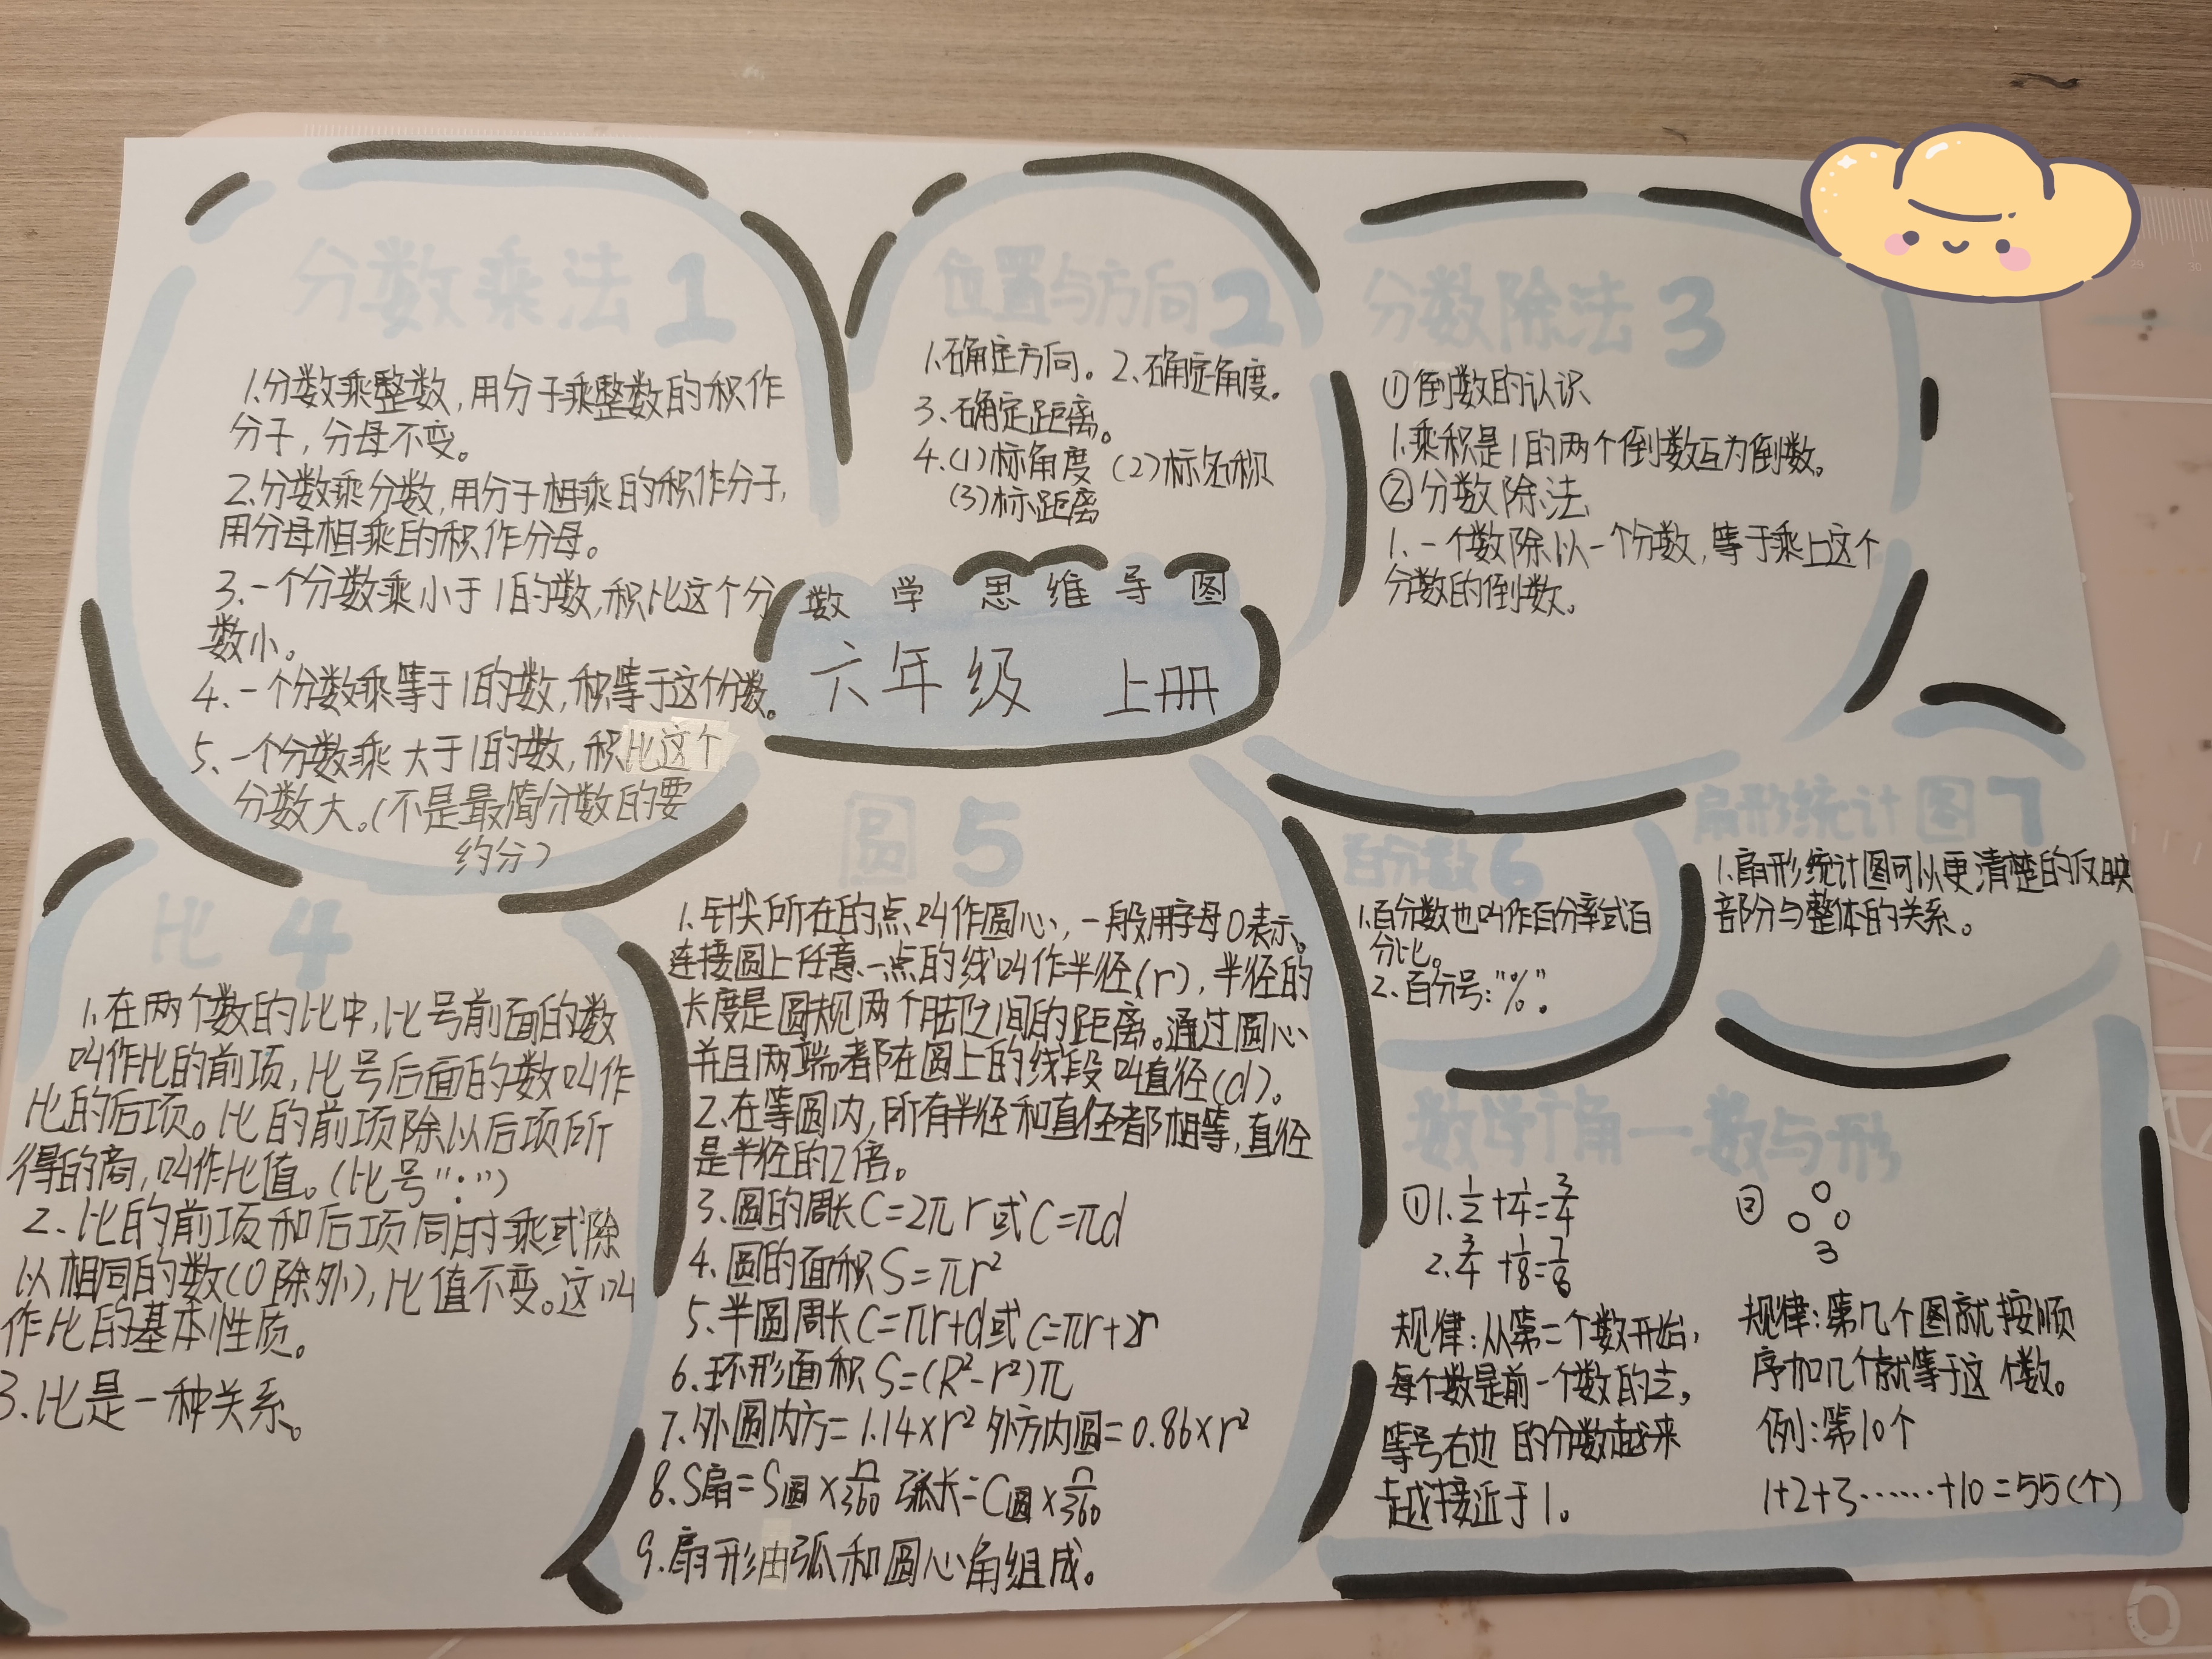 分数乘法 1
1.分数乘整数,用分子乘整数的积作
分子,分母不变。
2.分数乘分数,用分子相乘的积作分子,
用分母相乘的积作分母。
3.一个分数乘小于1的数,积比这个分
数小。
4、一个分数乘等于1的数,积等于这个分数。
5、一个分数乘大于1的数,积比这个
分数大。(不是最简分数的要
约分)
位置与方向 2
1.确定方向。2.确定角度。
3.确定距离。
4.(1)标角度 (2)标名称
(3)标距离
分数除法 3
①倒数的认识
1.乘积是1的两个倒数互为倒数。
②分数除法
1.一个数除以一个分数,等于乘上这个
分数的倒数。
数学思维导图
六年级 上册
比 4
1.在两个数的比中,比号前面的数
叫作比的前项,比号后面的数叫作
比的后项。比的前项除以后项所
得的商,叫作比值。(比号":")
2.比的前项和后项同时乘或除
以相同的数(0除外),比值不变。这叫
作比的基本性质。
3.比是一种关系。
圆 5
1.针尖所在的点叫作圆心,一般用字母O表示。
连接圆上任意一点的线叫作半径(r),半径的
长度是圆规两个脚之间的距离。通过圆心
并且两端都在圆上的线段叫直径(d)。
2.在等圆内,所有半径和直径都相等,直径
是半径的2倍。
3.圆的周长C=2πr或C=πd
4.圆的面积S=πr²
5.半圆周长C=πr+d或C=πr+2r
6.环形面积S=(R²-r²)π
7.外圆内方=1.14×r² 外方内圆=0.86×r²
8.S扇=S圆×n/360 弧长=C圆×n/360
9.扇形由弧和圆心角组成。
百分数 6
1.百分数也叫作百分率或百
分比。
2.百分号:"%".
扇形统计图 7
1.扇形统计图可以更清楚的反映
部分与整体的关系。
数学广角一数与形
①1.1/2+1/4=3/4
2.3/4+1/8=7/8
规律:从第二个数开始,
每个数是前一个数的1/2。
等号右边的分数越来
越接近于1。
②
3
规律:第几个图就按顺
序加几个就等于这个数。
例:第10个
1+2+3……+10=55(个)